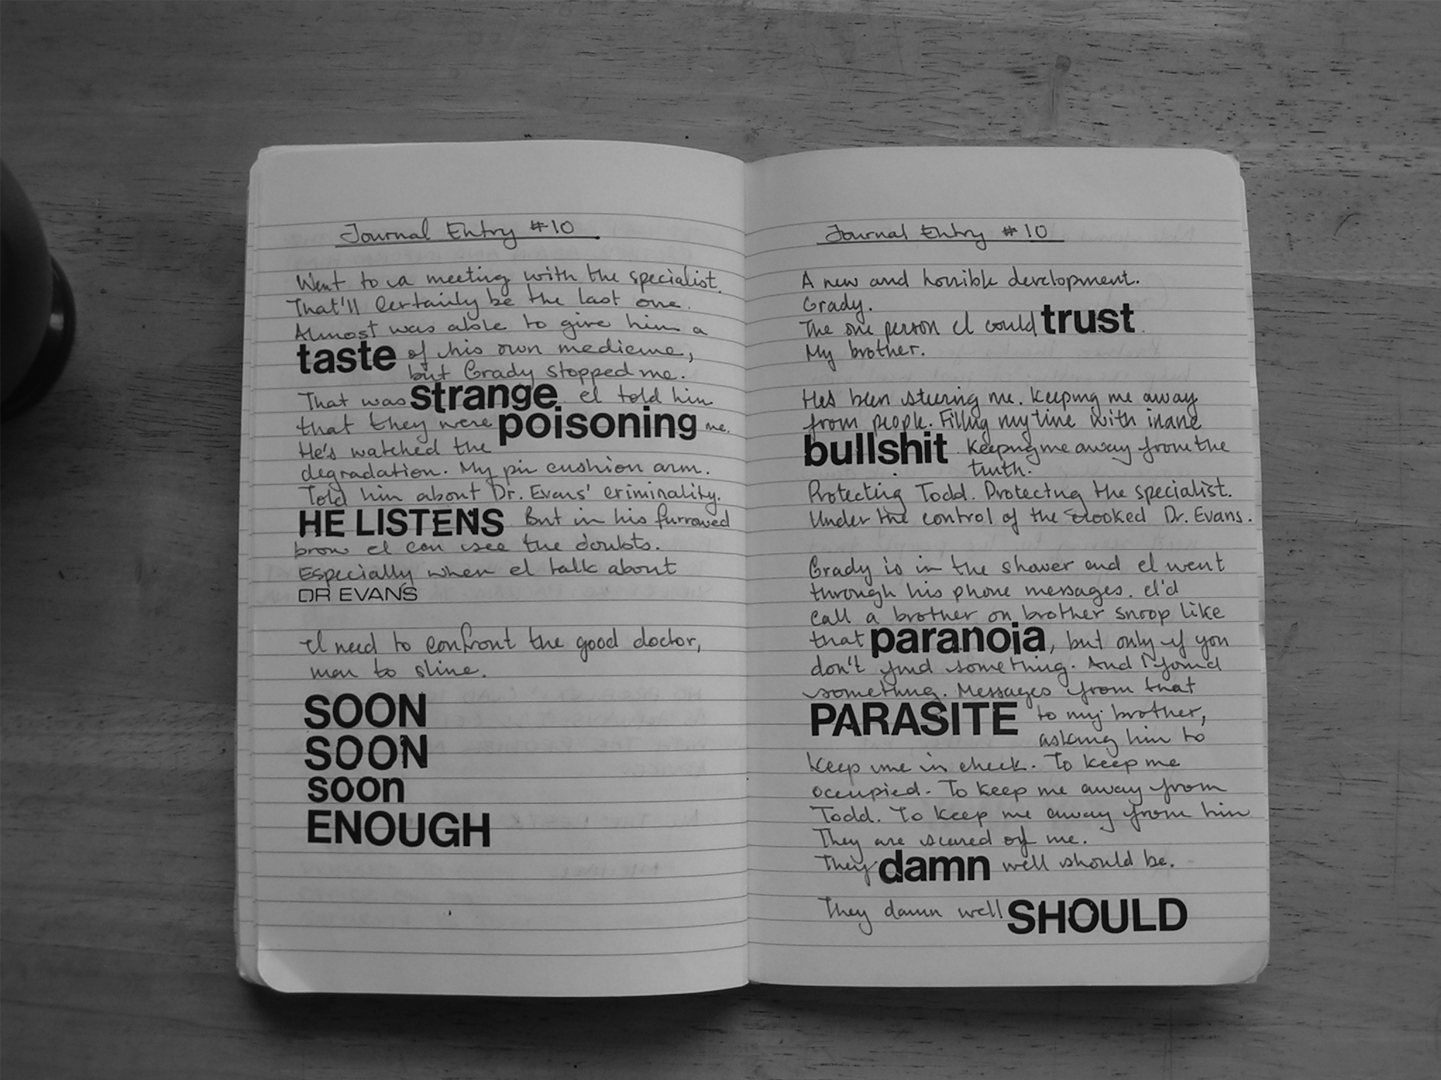 Journal Entry #10
Went to a meeting with the specialist.
That'll certainly be the last one.
Almost was able to give him a
taste of his own medicine,
but Grady stopped me.
That was strange I told him
that they were poisoning me.
He's watched the
degradation. My pin cushion arm.
Told him about Dr. Evans' criminality.
HE LISTENS But in his furrowed
brow I can see the doubts.
Especially when I talk about
DR EVANS
I need to confront the good doctor,
man to slime.
SOON
SOON
soon
ENOUGH
Journal Entry #10
A new and horrible development.
Grady.
The one person I could trust.
My brother.
He's been steering me. Keeping me away
from people. Filling my time with inane
bullshit. Keeping me away from the
truth.
Protecting Todd. Protecting the specialist.
Under the control of the crooked Dr. Evans.
Grady is in the shower and I went
through his phone messages. I'd
call a brother on brother snoop like
that paranoia, but only if you
don't find something. And I found
something. Messages from that
PARASITE to my brother,
asking him to
keep me in check. To keep me
occupied. To keep me away from
Todd. To keep me away from him
They are scared of me.
They damn well should be.
They damn well SHOULD